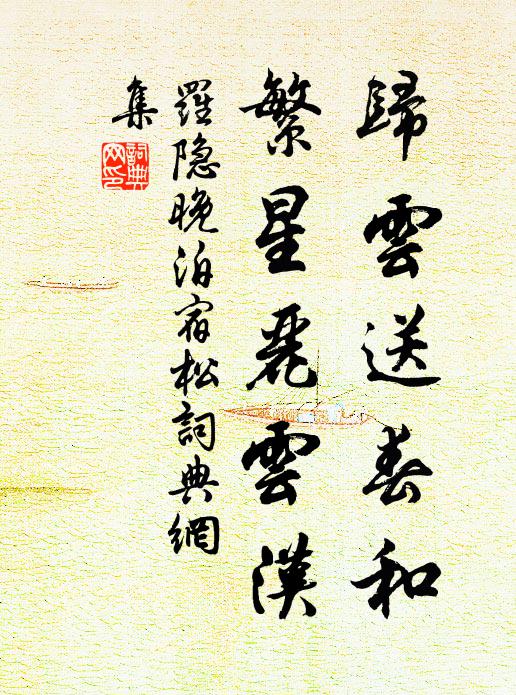 歸雲送春和
繁星麗雲漢
羅隐晚泊宿松詞典網
集
詞典网印